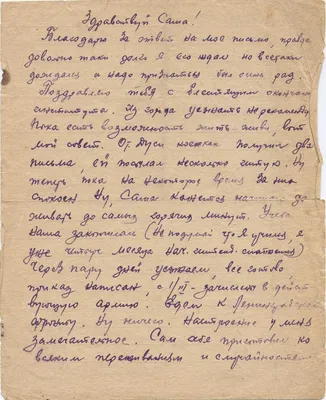 Здравствуй Саша!
Благодарю за ответ на мое письмо, правда
довольно таки долго я его ждал но всетаки
дождался и надо признаться был очень рад
Поздравляю тебя с блестящим окончан.
института. Из города уезжать не рекоменд.
Пока есть возможность жить живи, вот
мой совет. От Туси носках получил два
письма, ей послал несколько штук. Ну
теперь пока на некоторое время за них
спокоен. Ну, Саша кажется начинаю до
живать до самых горячих минут. Учебу
наша закончили (Не подумай что я учился, я
уже четыре месяца нач.
Через пару дней уезжаем, все готово
приказ написан, с зачислены в дейст
вующую армию. Едем к Ленинградскому
фронту. Ну ничего. Настроение у меня
замечательное. Сам себе приготовил ко
всяким переживаниям и случайностям